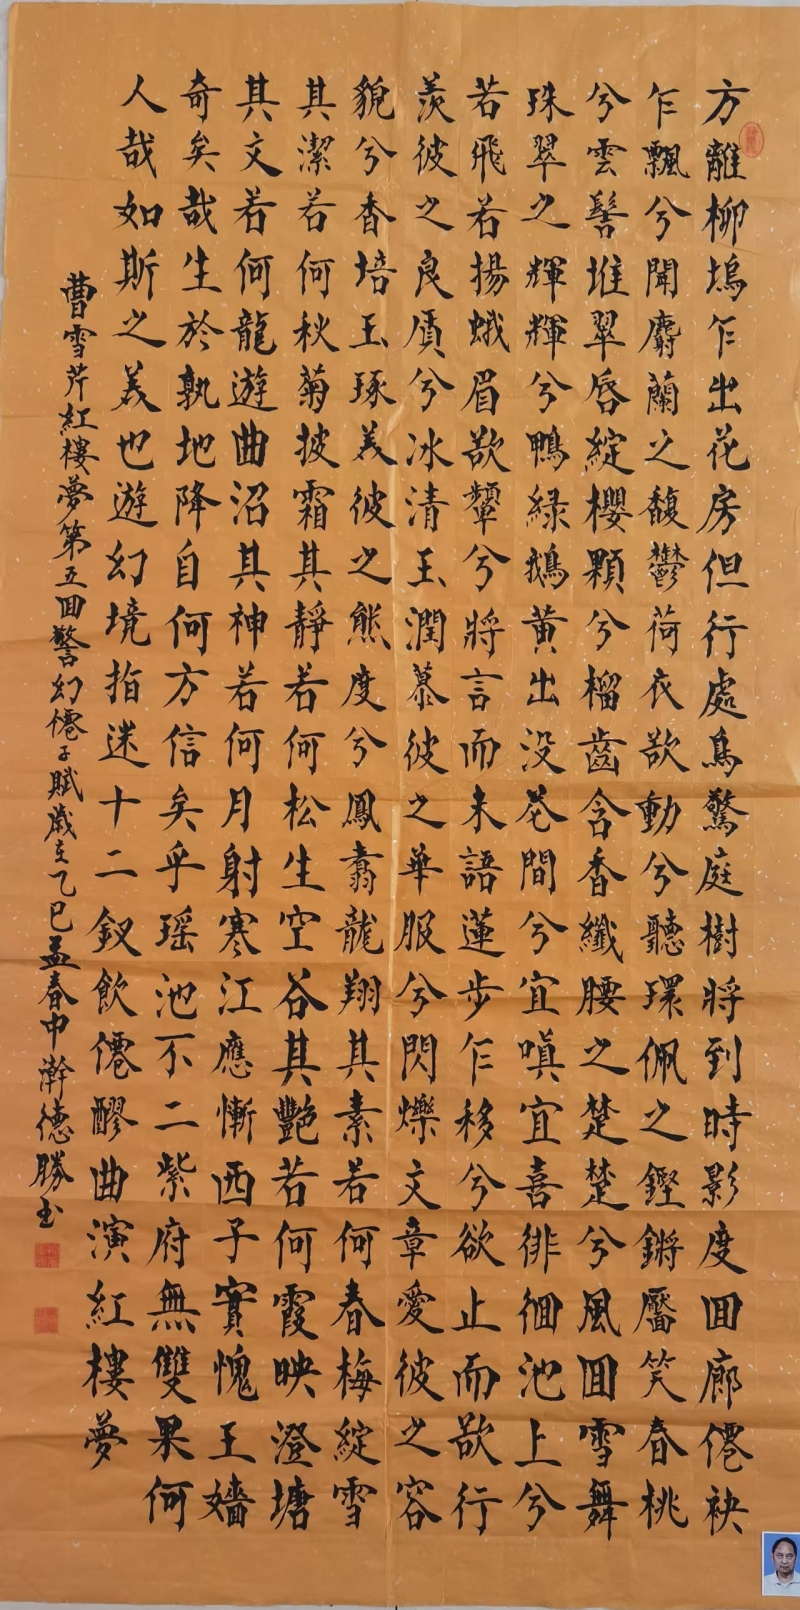 方離柳塢乍出花房但行處鳥驚庭樹將到時影度回廊僊袂
乍飄兮聞麝蘭之馥鬱荷衣欲動兮聽環佩之鏗鏘靨笑春桃
兮雲髻堆翠唇綻櫻顆兮榴齒含香纖腰之楚楚兮風回雪舞
珠翠之輝輝兮鴨緑鵝黃出没花間兮宜嗔宜喜徘徊池上兮
若飛若揚蛾眉欲顰兮將言而未語蓮步乍移兮欲止而欲行
羨彼之良質兮冰清玉潤慕彼之華服兮閃爍文章愛彼之容
貌兮香培玉琢美彼之態度兮鳳翥龍翔其素若何春梅綻雪
其潔若何秋菊披霜其靜若何松生空谷其艷若何霞映澄塘
其文若何龍遊曲沼其神若何月射寒江應慚西子實愧王嬙
奇矣哉生於孰地降自何方信矣乎瑶池不二紫府無雙果何
人哉如斯之美也遊幻境指迷十二釵飲僊醪曲演紅樓夢
曹雪芹紅樓夢第五回警幻僊子賦歲在乙巳孟春中瀚德勝書